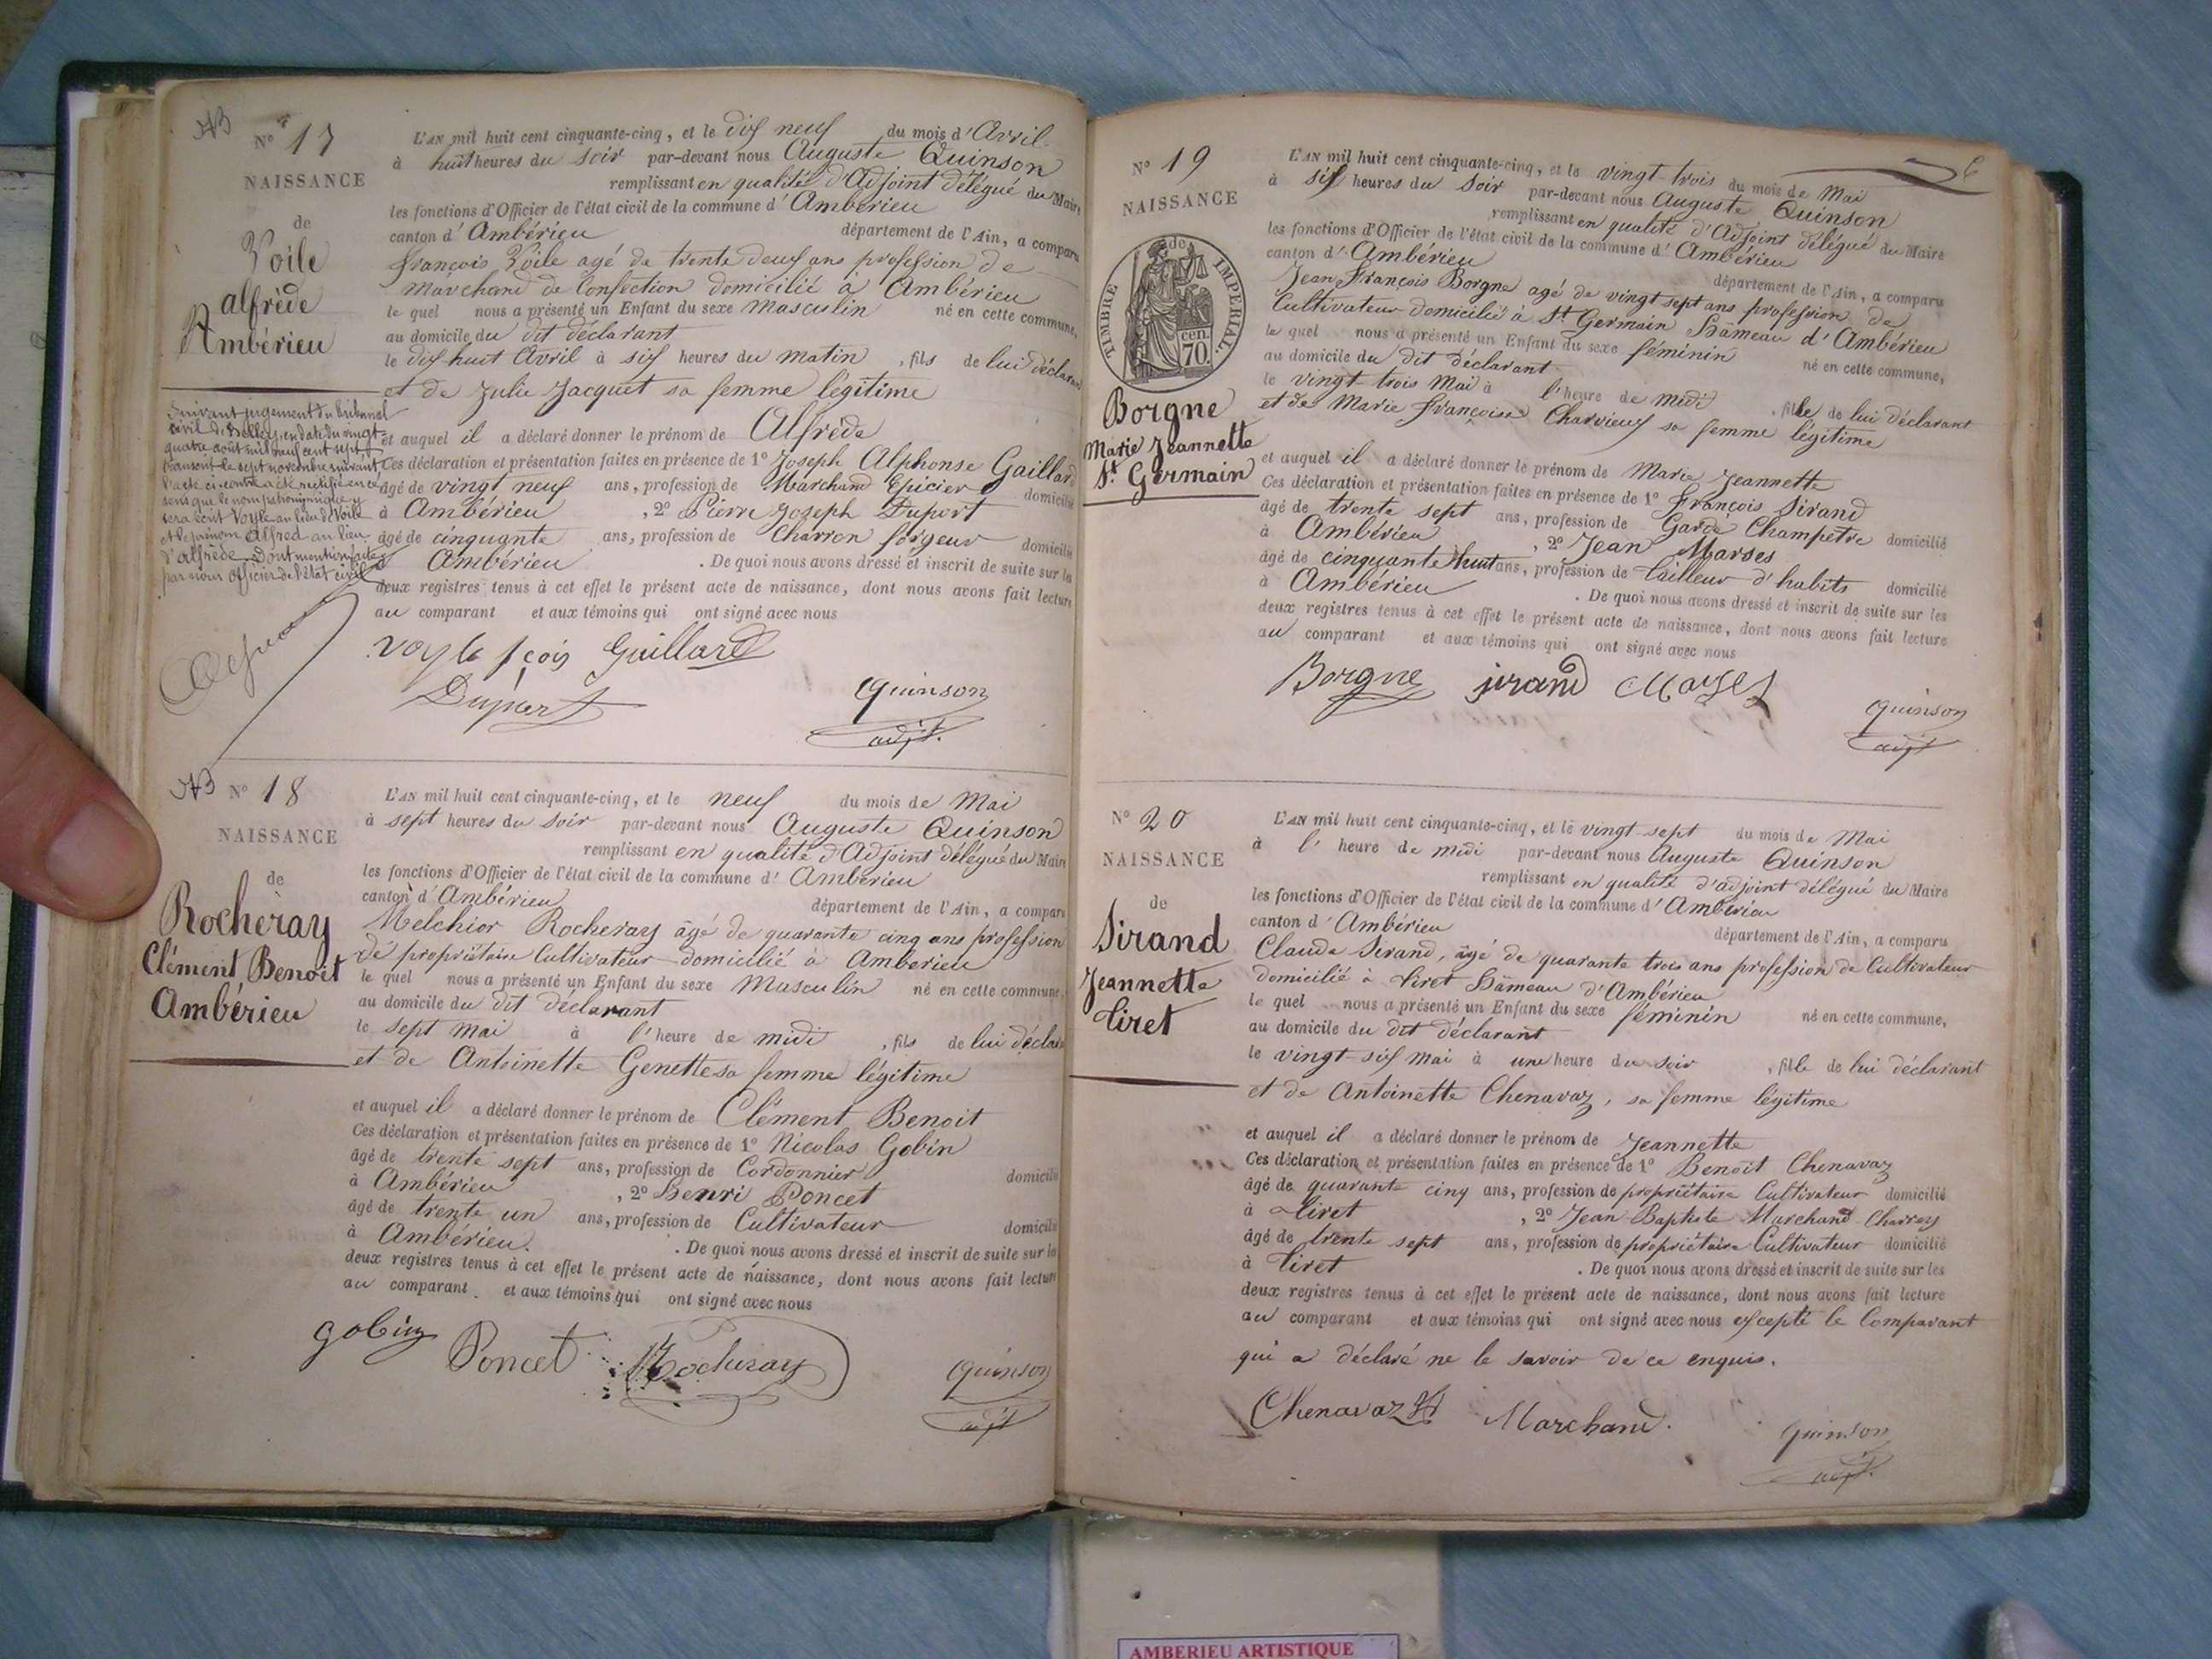 AB
N° 17
NAISSANCE
de
Voile
alfrède
Ambérieu
L'AN mil huit cent cinquante-cinq, et le dix neuf du mois d'Avril
à huit heures du soir par-devant nous Auguste Quinson
remplissant en qualité d'Adjoint délégué du Maire
les fonctions d'Officier de l'état civil de la commune d'Ambérieu
canton d'Ambérieu département de l'Ain, a comparu
françois Voile agé de trente deux ans profession de
Marchand de Confection domicilié à Ambérieu
le quel nous a présenté un Enfant du sexe Masculin né en cette commune,
au domicile du dit déclarant
le dix huit Avril à six heures du matin, fils de lui déclarant
et de Julie Jacquet sa femme légitime
et auquel il a déclaré donner le prénom de Alfréde
Ces déclaration et présentation faites en présence de 1° Joseph Alphonse Gaillard
âgé de vingt neuf ans, profession de Marchand Epicier domicilié
à Ambérieu, 2° Pierre Joseph Duport
âgé de cinquante ans, profession de Charron forgeur domicilié
à Ambérieu. De quoi nous avons dressé et inscrit de suite sur les
deux registres tenus à cet effet le présent acte de naissance, dont nous avons fait lecture
au comparant et aux témoins qui ont signé avec nous
Suivant jugement du tribunal
civil de Belley, en date du vingt
quatre août mil neuf cent sept
transcrit le sept novembre suivant
l'acte ci-contre a été rectifié en ce
sens que le nom patronymique y
sera écrit Voyle au lieu de Voile
et le prénom Alfred au lieu
d'alfrède. Dont mention faite
par nous Officier de l'état civil
Voyle fçois Gaillard
Duport Quinson
adjt.
AB N° 18
NAISSANCE
de
Rocheray
Clément Benoît
Ambérieu
L'AN mil huit cent cinquante-cinq, et le neuf du mois de Mai
à sept heures du soir par-devant nous Auguste Quinson
remplissant en qualité d'Adjoint délégué du Maire
les fonctions d'Officier de l'état civil de la commune d'Ambérieu
canton d'Ambérieu département de l'Ain, a comparu
Melchior Rocheray âgé de quarante cinq ans profession
de propriétaire Cultivateur domicilié à Ambérieu
le quel nous a présenté un Enfant du sexe Masculin né en cette commune,
au domicile du dit déclarant
le sept mai à l'heure de midi, fils de lui déclarant
et de Antoinette Genette sa femme légitime
et auquel il a déclaré donner le prénom de Clément Benoit
Ces déclaration et présentation faites en présence de 1° Nicolas Gobin
âgé de trente sept ans, profession de Cordonnier domicilié
à Ambérieu, 2° Henri Poncet
âgé de trente un ans, profession de Cultivateur domicilié
à Ambérieu. De quoi nous avons dressé et inscrit de suite sur les
deux registres tenus à cet effet le présent acte de naissance, dont nous avons fait lecture
au comparant et aux témoins qui ont signé avec nous
gobin Poncet Rocheray Quinson
adjt
6
N° 19
NAISSANCE
de
TIMBRE IMPERIAL.
cen.
70.
Borgne
Marie Jeannette
St. Germain
L'AN mil huit cent cinquante-cinq, et le vingt-trois du mois de Mai
à six heures du soir par-devant nous Auguste Quinson
remplissant en qualité d'Adjoint délégué du Maire
les fonctions d'Officier de l'état civil de la commune d'Ambérieu
canton d'Ambérieu département de l'Ain, a comparu
Jean François Borgne agé de vingt sept ans profession de
Cultivateur domicilié à St Germain hâmeau d'Ambérieu
le quel nous a présenté un Enfant du sexe féminin né en cette commune,
au domicile du dit déclarant
le vingt-trois Mai à l'heure de midi, fille de lui déclarant
et de Marie françoise Charvieux sa femme légitime
et auquel il a déclaré donner le prénom de Marie Jeannette
Ces déclaration et présentation faites en présence de 1° François Sirand
âgé de trente sept ans, profession de Garde Champêtre domicilié
à Ambérieu, 2° Jean Marses
âgé de cinquante huit ans, profession de tailleur d'habits domicilié
à Ambérieu. De quoi nous avons dressé et inscrit de suite sur les
deux registres tenus à cet effet le présent acte de naissance, dont nous avons fait lecture
au comparant et aux témoins qui ont signé avec nous
Borgne sirand Marses
Quinson
adjt
N° 20
NAISSANCE
de
Sirand
Jeannette
tiret
L'AN mil huit cent cinquante-cinq, et le vingt-sept du mois de Mai
à l'heure de midi par-devant nous Auguste Quinson
remplissant en qualité d'adjoint délégué du Maire
les fonctions d'Officier de l'état civil de la commune d'Ambérieu
canton d'Ambérieu département de l'Ain, a comparu
Claude Sirand, âgé de quarante trois ans profession de Cultivateur
domicilié à tiret hâmeau d'Ambérieu
le quel nous a présenté un Enfant du sexe féminin né en cette commune,
au domicile du dit déclarant
le vingt-six mai à une heure du soir, fille de lui déclarant
et de Antoinette Chenavaz, sa femme légitime
et auquel il a déclaré donner le prénom de Jeannette
Ces déclaration et présentation faites en présence de 1° Benoît Chenavaz
âgé de quarante cinq ans, profession de propriétaire Cultivateur domicilié
à tiret, 2° Jean-Baptiste Marchand-Charrey
âgé de trente sept ans, profession de propriétaire Cultivateur domicilié
à tiret. De quoi nous avons dressé et inscrit de suite sur les
deux registres tenus à cet effet le présent acte de naissance, dont nous avons fait lecture
au comparant et aux témoins qui ont signé avec nous excepté le Comparant
qui a déclaré ne le savoir de ce enquis.
Chenavaz Marchand.
Quinson
adjt.
AMBERIEU ARTISTIQUE